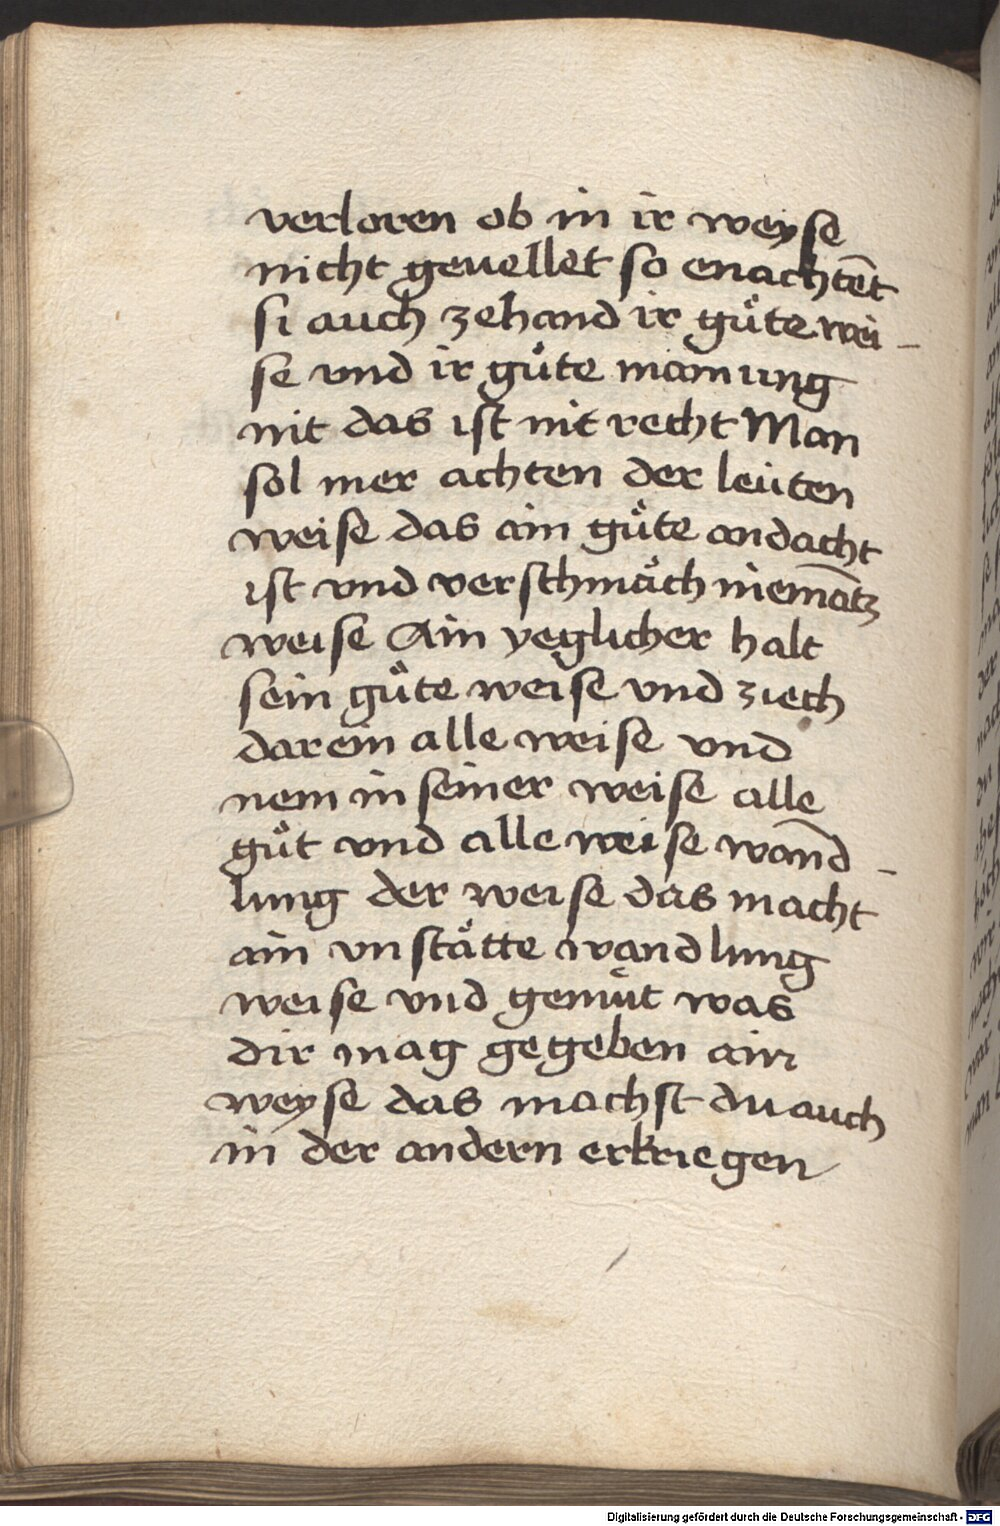 verloren ob in ir weyse
nicht geuellet so enachtēt
si auch zehand ir guͤte wei-
se vnd ir guͤte mainung
nit das ist nit recht Man
sol mer achten der leuten
weise das ain guͤte andacht
ist vnd verschmaͤch niemātz
weise Ain yeglicher halt
sein guͤte weise vnd ziech
darein alle weise vnd
nem in seiner weise alle
guͤt vnd alle weise wānd-
lung der weise das macht
ain vnstaͤtte wandlung
weise vnd gemuͤt was
dir mag gegeben ain
weyse das machst du auch
in der andern erkriegen
Digitalisierung gefördert durch die Deutsche Forschungsgemeinschaft - DFG